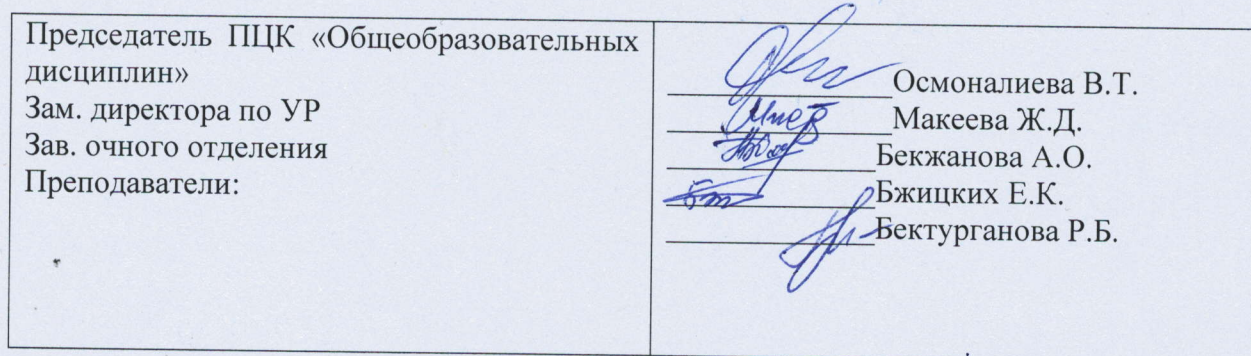 Председатель ПЦК «Общеобразовательных
дисциплин»
Зам. директора по УР
Зав. очного отделения
Преподаватели:
Осмоналиева В.Т.
Макеева Ж.Д.
Бекжанова А.О.
Бжицких Е.К.
Бектурганова Р.Б.